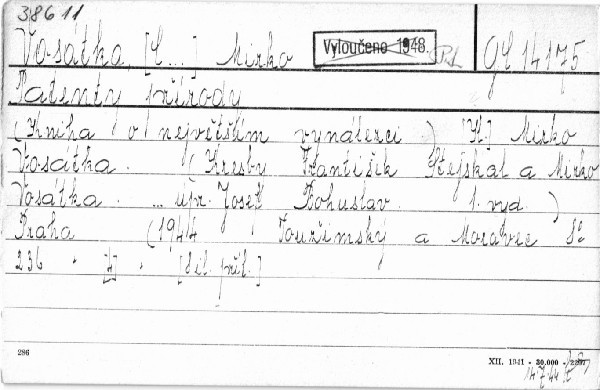 38611
Vosátka, [C...] Mirko
Vyloučeno 1948.
GE 14175
Patenty přírody
(Kniha o největším vynálezci.) [Il.] Mirko
Vosátka. (Kresby František Stejskal a Mirko
Vosátka. ... úpr. Josef Bohuslav. 1. vyd.)
Praha (1944 Toužimský a Moravec 8°
236. [I]. [Sil. příl.]
286
XII. 1941 - 30,000 -
14.7.44